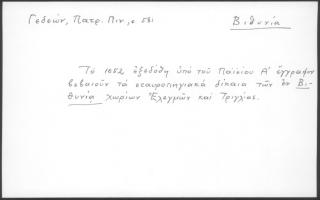 Γεδεών, Πατρ. Πιν., σ. 581
Βιθυνία
Τὸ 1652 ἐξεδόθη ὑπὸ τοῦ Παϊσίου Α' ἔγγραφον
βεβαιοῦν τὰ σταυροπηγιακὰ δίκαια τῶν ἐν Βι-
θυνίᾳ χωρίων Ἐλεγμῶν καὶ Τριγλίας.